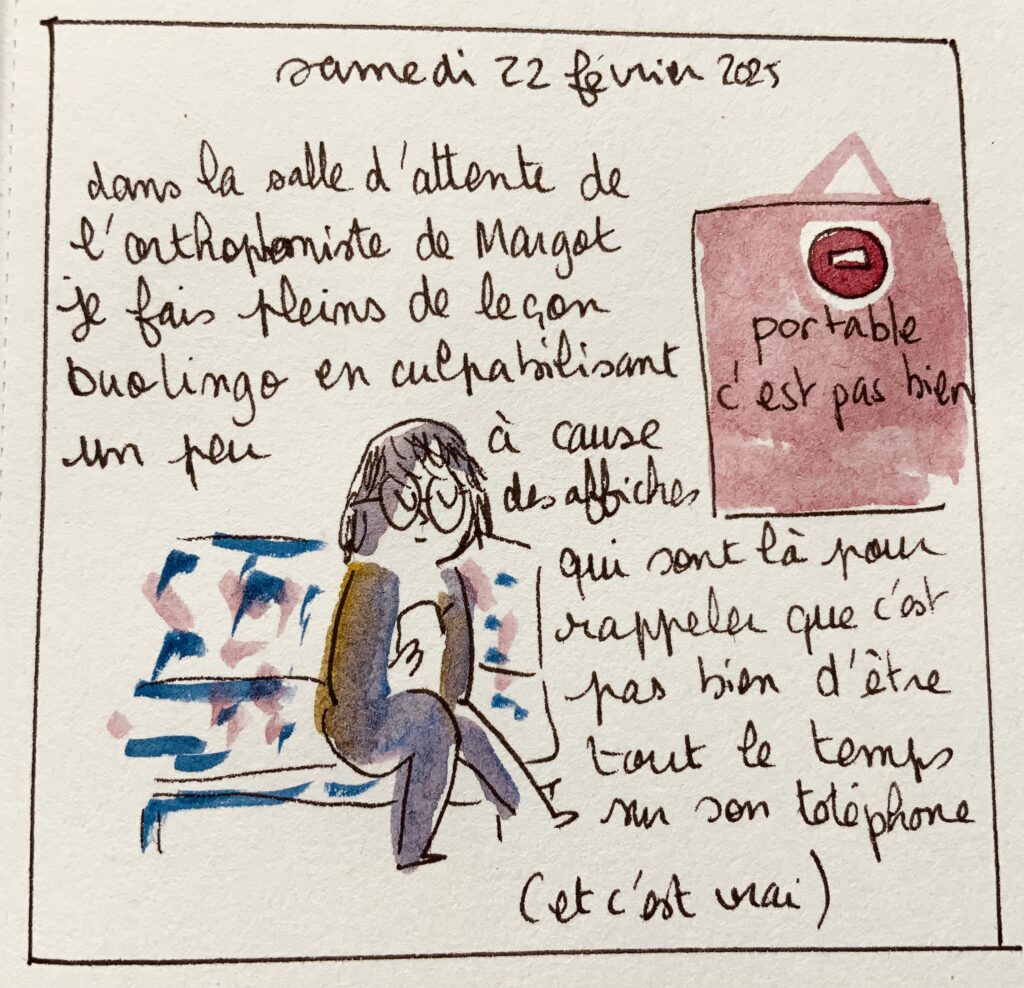 samedi 22 février 2025
dans la salle d'attente de
l'orthophoniste de Margot
je fais pleins de leçon
Duolingo en culpabilisant
un peu à cause
des affiches
qui sont là pour
rappeler que c'est
pas bien d'être
tout le temps
sur son téléphone
(et c'est vrai)
portable
c'est pas bien